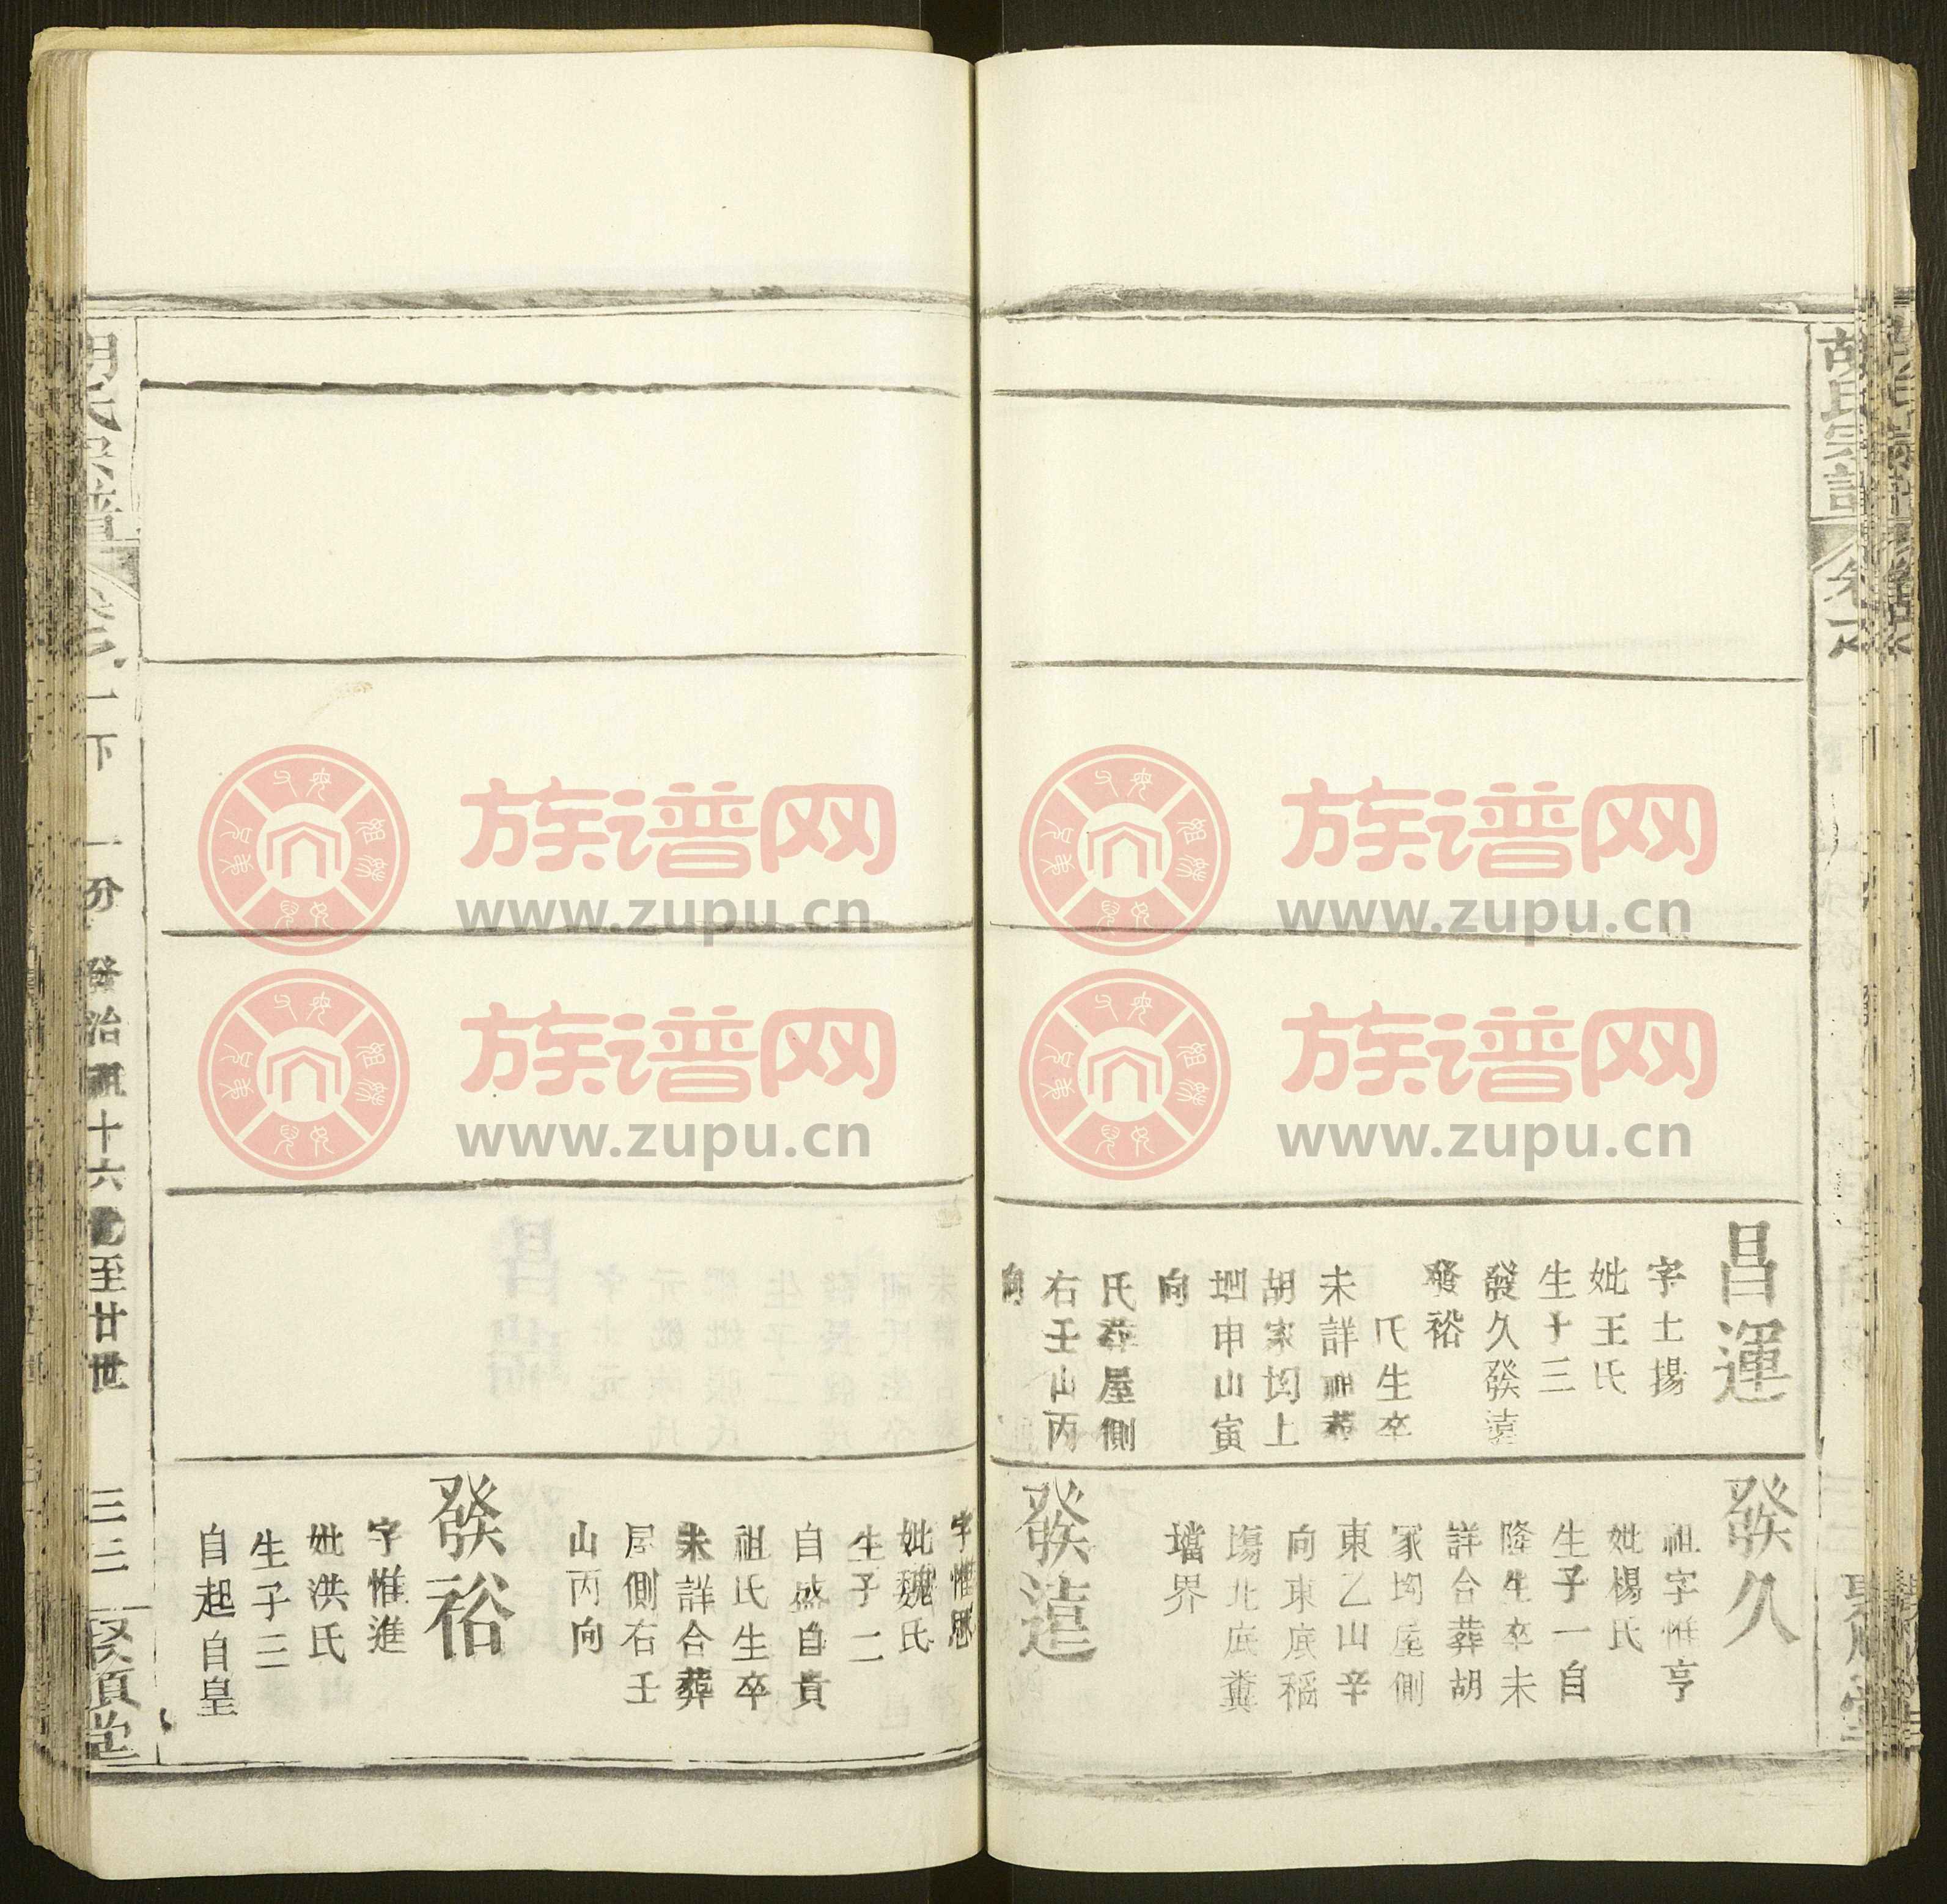 昌運
字士揚
妣王氏
生子三
發久發遠
發裕
氏生卒
未詳祖葬
胡家坳上
坤申山寅
向
氏葬屋側
右壬山丙
向
發久
祖字惟亨
妣楊氏
生子一自
隆生卒未
詳合葬胡
家坳屋側
東乙山辛
向東底稲
塲北底糞
壋界
發遠
字惟
妣魏氏
生子二
自盛自貴
祖氏生卒
未詳合葬
屋側右壬
山丙向
發裕
字惟進
妣洪氏
生子三
自起自皇
胡氏宗譜
卷
一下
一分
發治祖十六世至廿世
三三
聚順堂
族谱网
www.zupu.cn
族谱网
www.zupu.cn
族谱网
www.zupu.cn
族谱网
www.zupu.cn